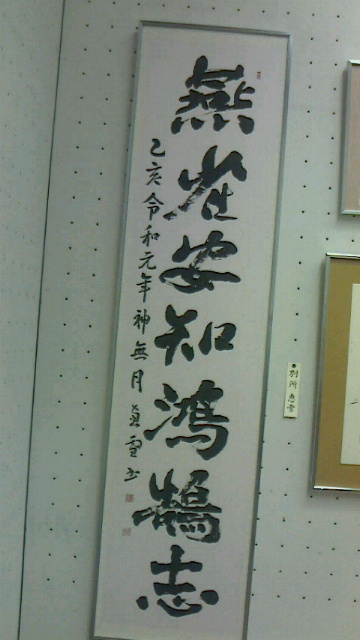 燕雀安知鴻鵠志
乙亥令和元年神無月
雪書
別所